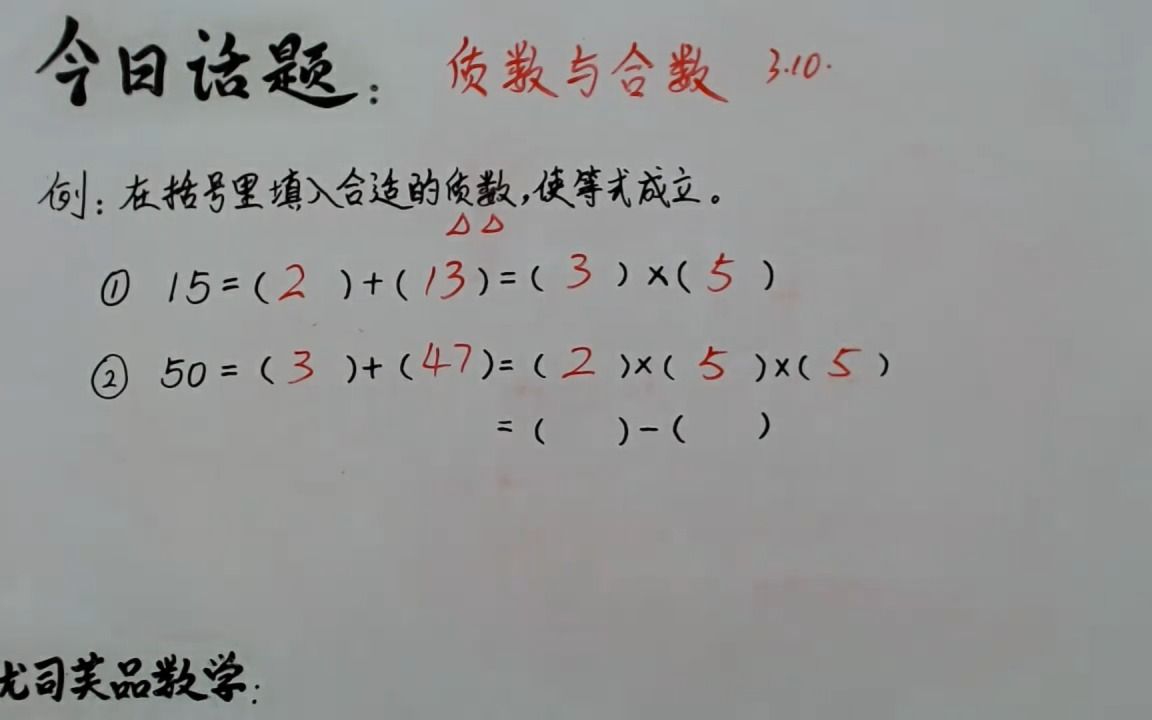 今日话题: 质数与合数 3.10.
例: 在括号里填入合适的质数,使等式成立。
△△
① 15=(2)+(13)=(3)×(5)
② 50=(3)+(47)=(2)×(5)×(5)
=( )-( )
尤司芙品数学: